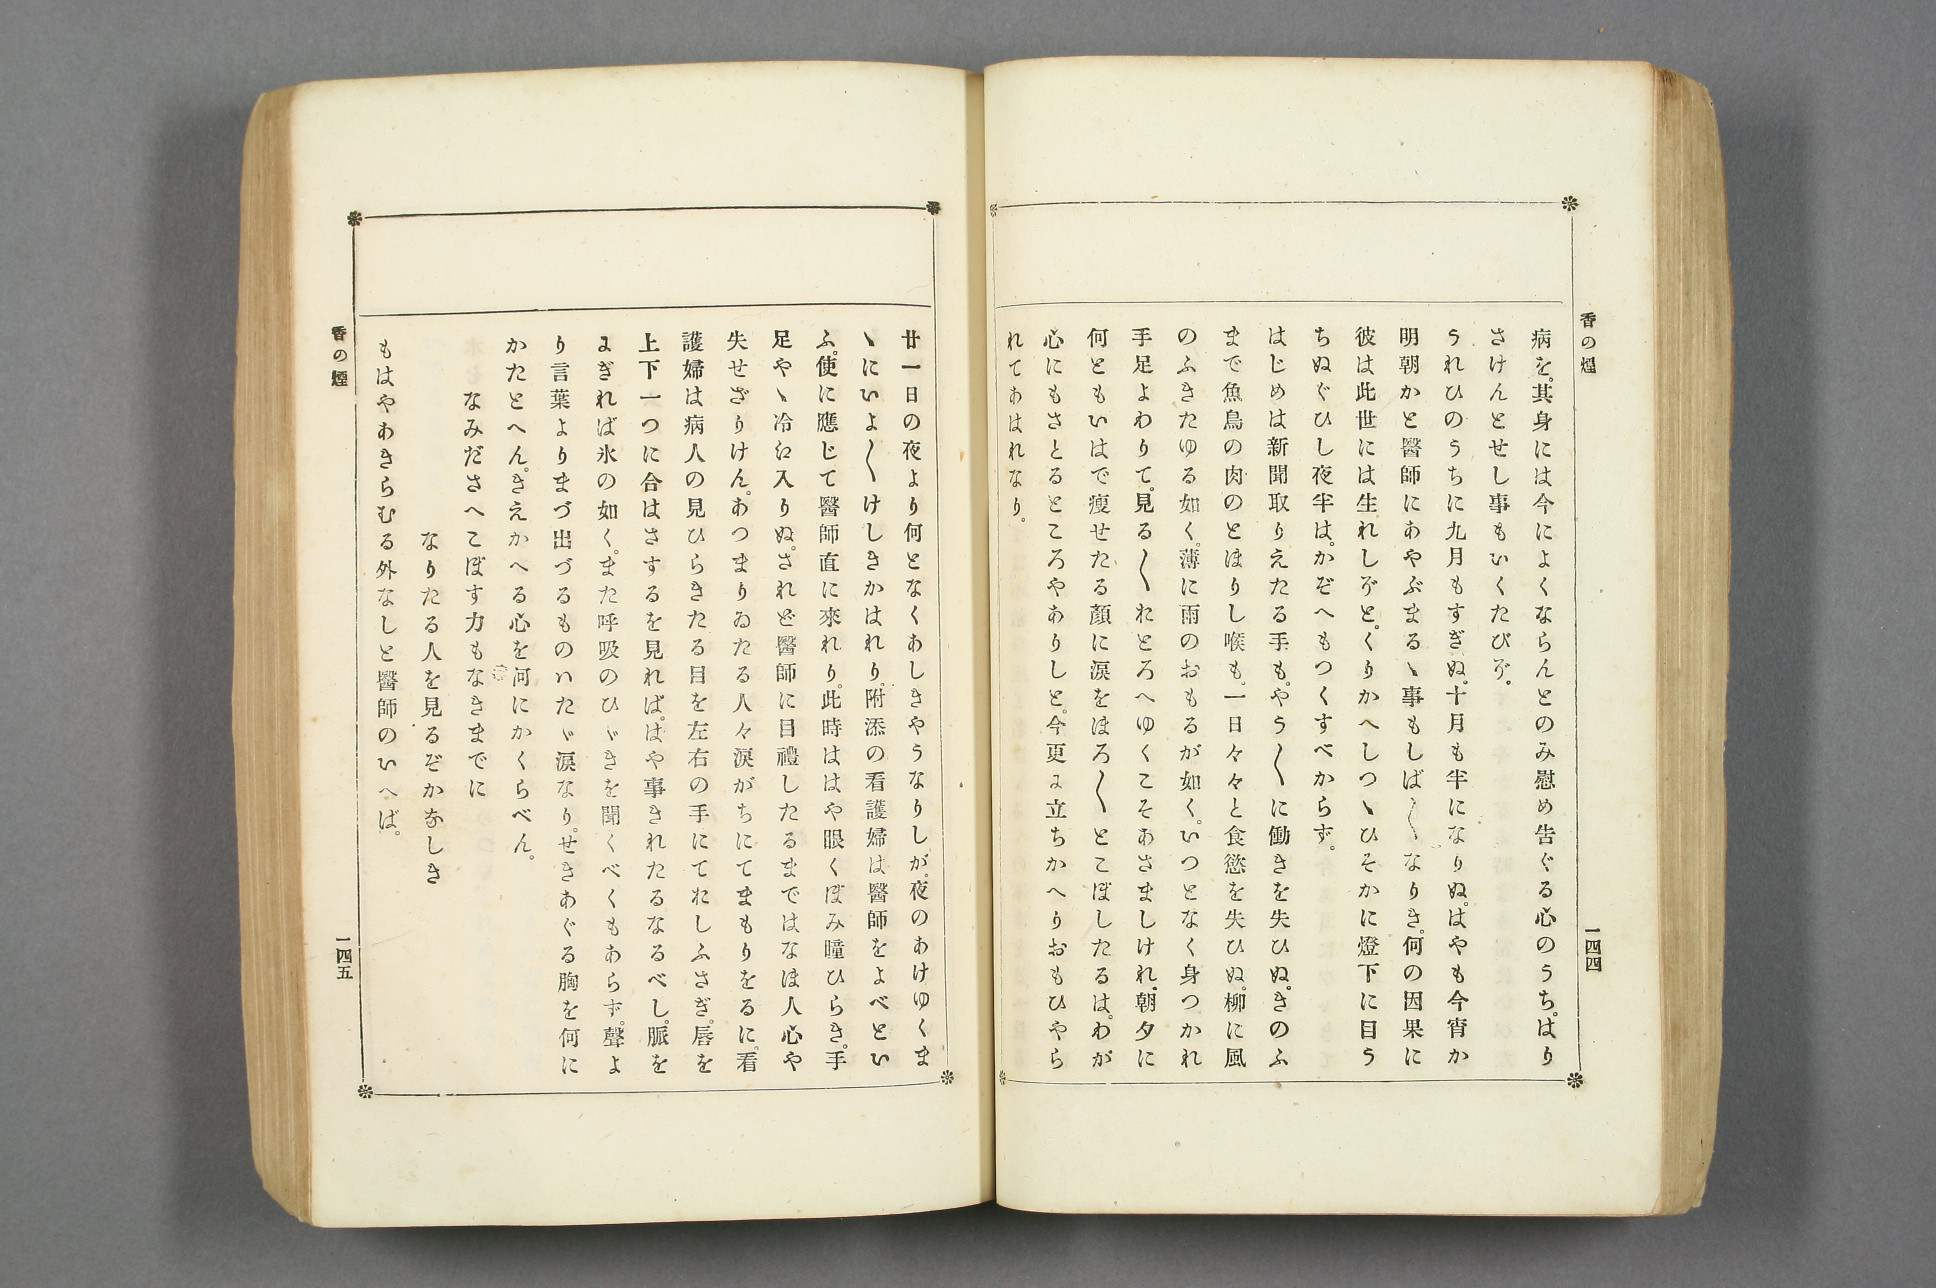 香の煙
一四四
病を。其身には今によくならんとのみ慰め告ぐる心のうち。はり
さけんとせし事もいくたびぞ。
うれひのうちに九月もすぎぬ。十月も半になりぬ。はやも今宵か
明朝かと醫師にあやぶまるゝ事もしば〳〵なりき。何の因果に
彼は此世には生れしぞと。くりかへしつゝひそかに燈下に目う
ちぬぐひし夜半は。かぞへもつくすべからず。
はじめは新聞取りえたる手も。やう〳〵に働きを失ひぬ。きのふ
まで魚鳥の肉のとほりし喉も。一日々々と食慾を失ひぬ。柳に風
のふきたゆる如く。薄に雨のおもるが如く。いつとなく身つかれ
手足よわりて。見る〳〵れとろへゆくこそあさましけれ。朝夕に
何ともいはで瘦せたる顏に淚をほろ〳〵とこぼしたるは。わが
心にもさとるところやありしと。今更に立ちかへりおもひやら
れてあはれなり。
廿一日の夜より何となくあしきやうなりしが。夜のあけゆくま
ゝにいよ〳〵けしきかはれり。附添の看護婦は醫師をよべとい
ふ。使に應じて醫師直に來れり。此時はや眼くぼみ瞳ひらき。手
足やゝ冷え入りぬ。されど醫師に目禮したるまではなほ人心や
失せざりけん。あつまりゐたる人々淚がちにてまもりをるに。看
護婦は病人の見ひらきたる目を左右の手にてれしふさぎ。唇を
上下一つに合はさするを見れば。はや事きれたるなるべし。脈を
まぎれば氷の如く。また呼吸のひゞきを聞くべくもあらず。聲よ
り言葉よりまづ出づるものはたゞ淚なり。せきあぐる胸を何に
かたとへん。きえかへる心を何にかくらべん。
なみださへこぼす力もなきまでに
なりたる人を見るぞかなしき
もはやあきらむる外なしと醫師のいへば。
香の煙
一四五